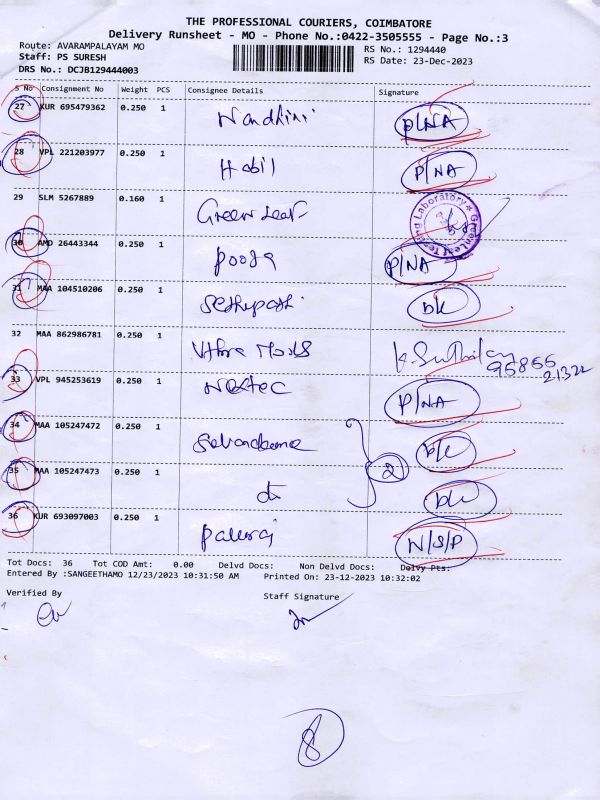 THE PROFESSIONAL COURIERS, COIMBATORE
Delivery Runsheet - MO - Phone No.:0422-3505555 - Page No.:3
Route: AVARAMPALAYAM MO RS No.: 1294440
Staff: PS SURESH RS Date: 23-Dec-2023
DRS No.: DCJB129444003
S No Consignment No Weight PCS Consignee Details Signature
27 KUR 695479362 0.250 1 Nandhini P/NA
28 VPL 221203977 0.250 1 Habil P/NA
29 SLM 5267889 0.160 1 Green Leaf GreenLeaf Testing Laboratory
30 AMD 26443344 0.250 1 Pooja P/NA
31 MAA 104510206 0.250 1 Sethupathi
32 MAA 862986781 0.250 1 95855
21322
33 VPL 945253619 0.250 1 Nextec P/NA
34 MAA 105247472 0.250 1
35 MAA 105247473 0.250 1 2
36 KUR 693097003 0.250 1 Palraj N/S/P
Tot Docs: 36 Tot COD Amt: 0.00 Delvd Docs: Non Delvd Docs: Delvy Pts:
Entered By :SANGEETHAMO 12/23/2023 10:31:50 AM Printed On: 23-12-2023 10:32:02
Verified By Staff Signature
8